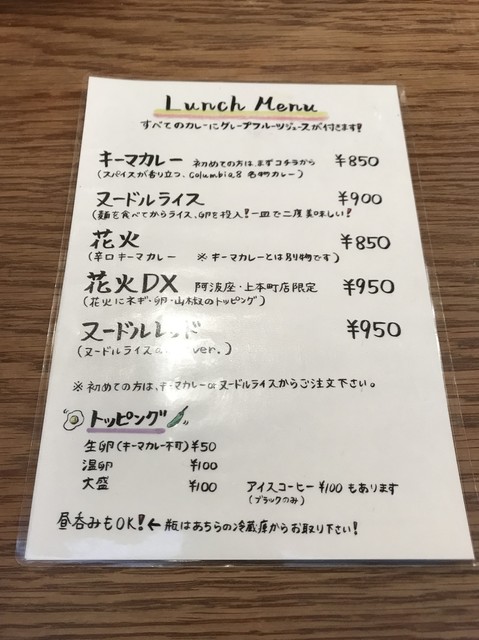 Lunch Menu
すべてのカレーにグレープフルーツジュースが付きます!
キーマカレー 初めての方は、まずコチラから ¥850
(スパイスが香り立つ、Columbia8 名物カレー)
ヌードルライス ¥900
(麺を食べてからライス、卵を投入!一皿で二度美味しい!
花火 ¥850
(辛口キーマカレー ※キーマカレーとは別物です)
花火DX 阿波座・上本町店限定 ¥950
(花火にネギ・卵・山椒のトッピング)
ヌードルレッド ¥950
(ヌードルライスの ver.)
※初めての方は、キーマカレーorヌードルライスからご注文下さい。
トッピング
生卵(キーマカレー不可) ¥50
温卵 ¥100
大盛 ¥100 アイスコーヒー ¥100 もあります
(ブラックのみ)
昼呑みもOK!← 瓶はあちらの冷蔵庫からお取り下さい!